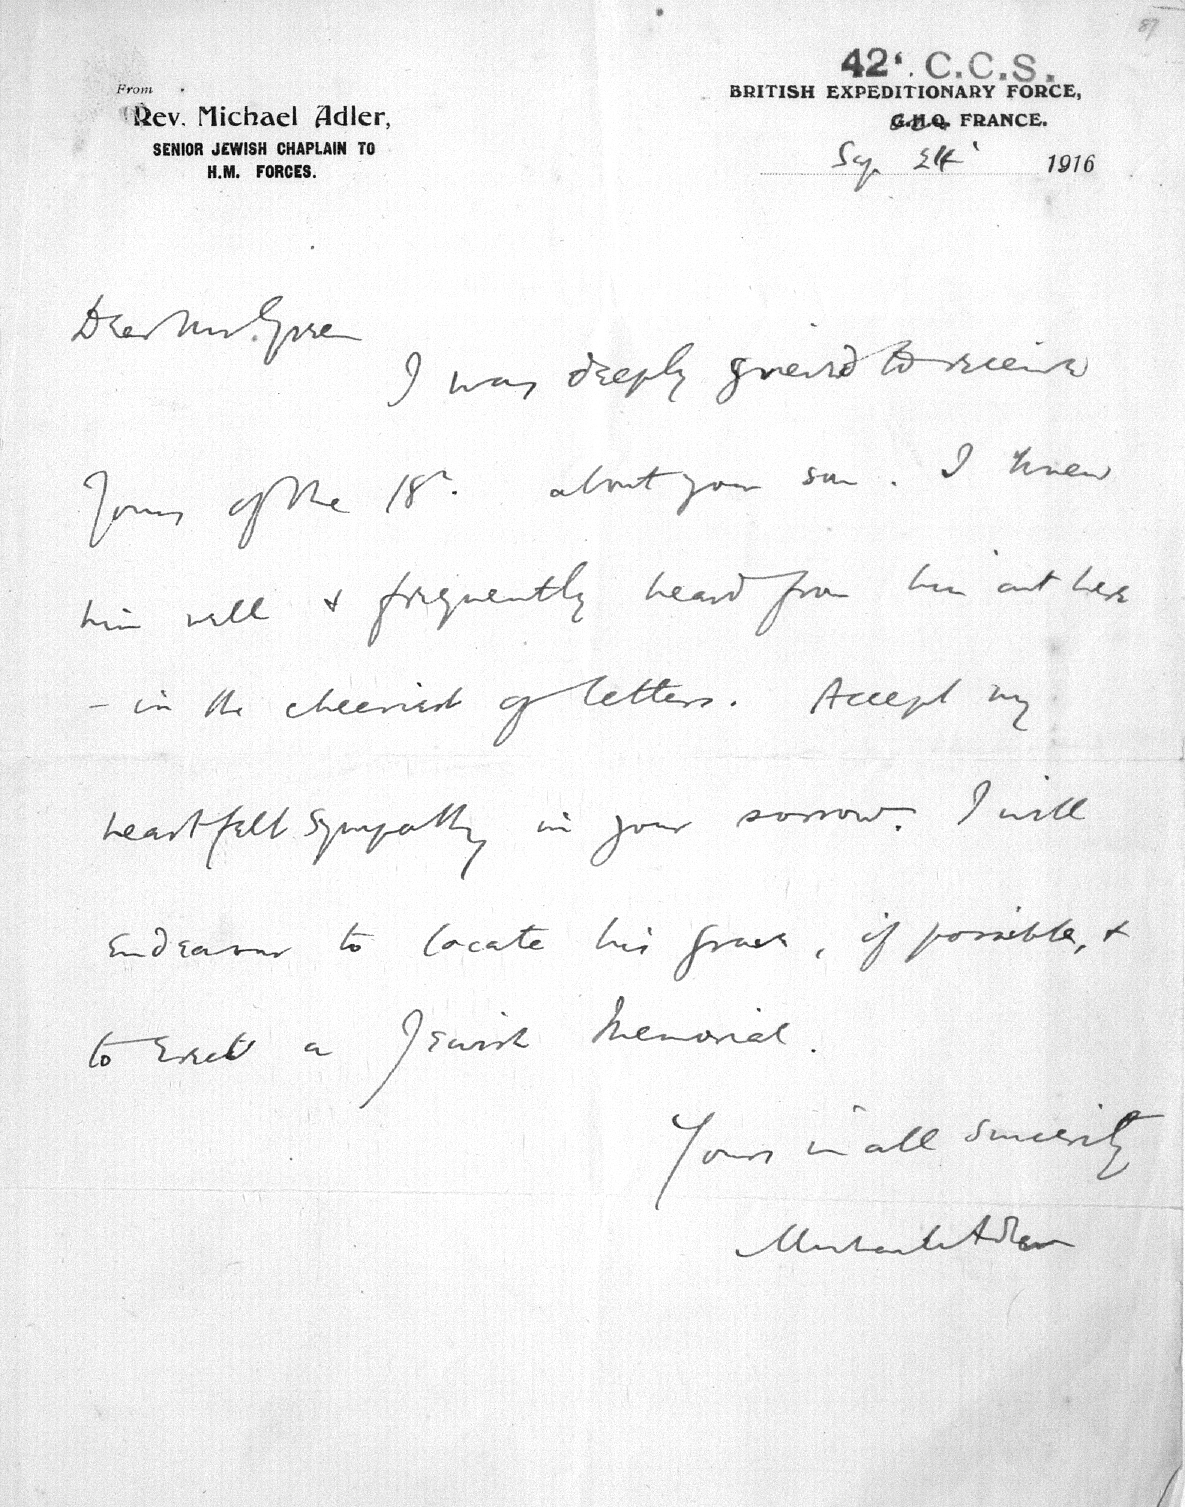 87
42. C.C.S.
From
Rev. Michael Adler,
BRITISH EXPEDITIONARY FORCE,
SENIOR JEWISH CHAPLAIN TO
G.H.Q. FRANCE.
H.M. FORCES.
Sep. 24 1916
Dear Mr. Green
I was deeply grieved to receive
Yours of the 18th. about your son. I knew
him well & frequently heard from him out here
– in the cheeriest of letters. Accept my
heartfelt sympathy in your sorrow. I will
endeavour to locate his grave, if possible, &
to erect a Jewish Memorial.
Yours in all sincerity
Michael Adler